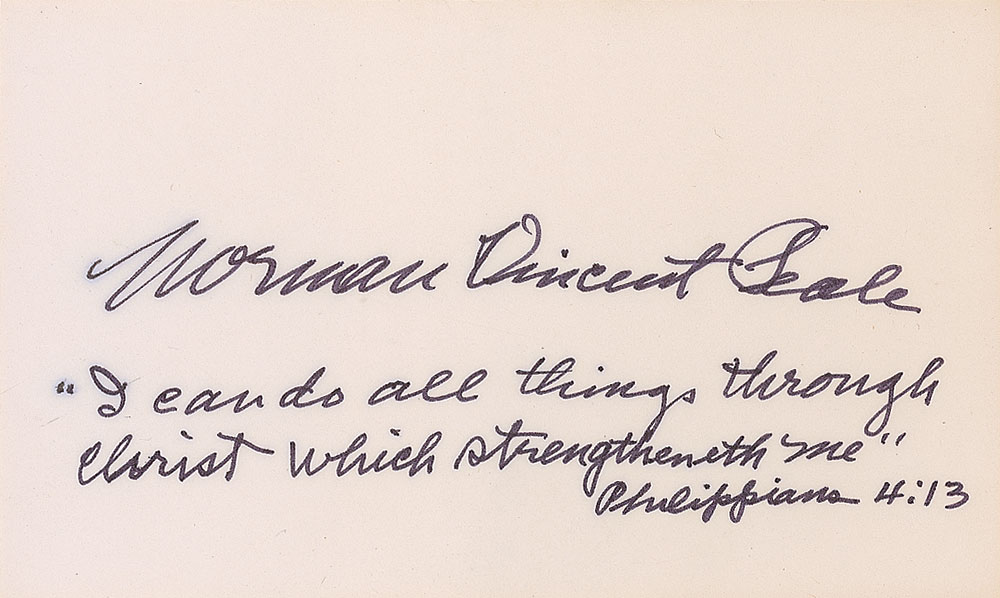 Norman Vincent Peale
"I can do all things through
Christ which strengtheneth me"
Philippians 4:13